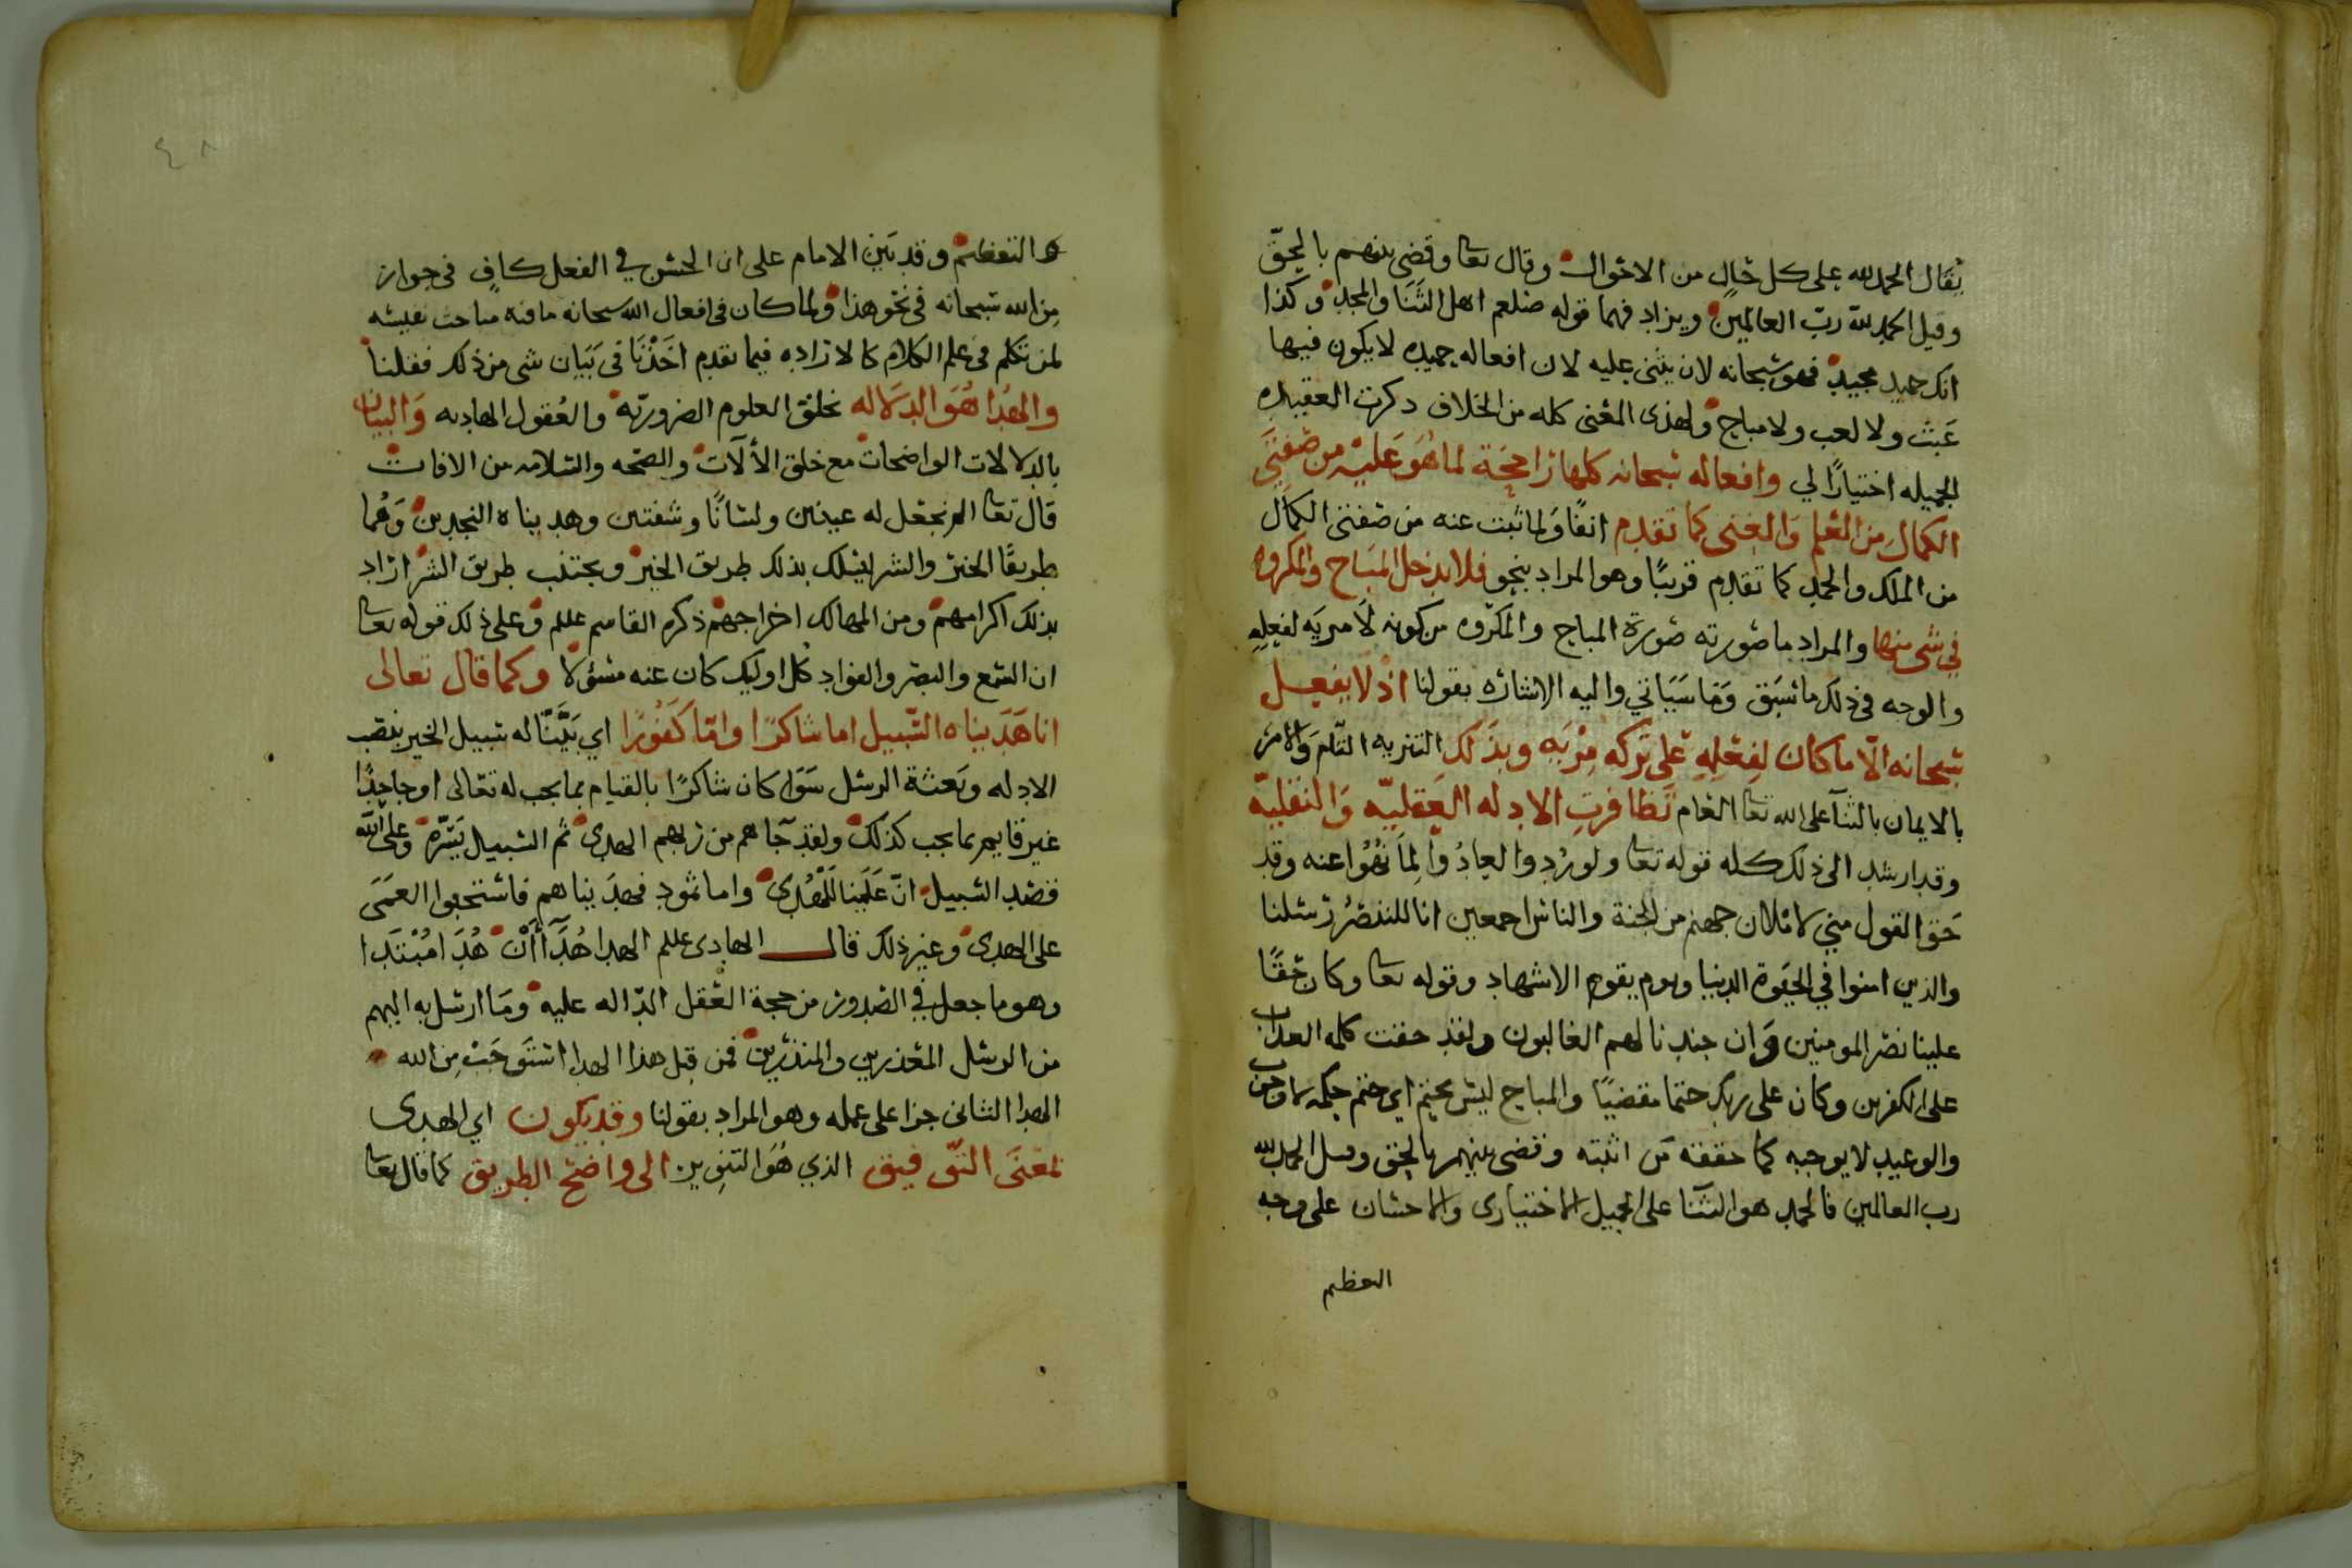 يقال الحمد لله على كل حال من الاحوال وقال تعا وقضى بينهم بالحق
وقيل الحمد لله رب العالمين ويزاد فيهما قوله صلعم اهل الثنا والمجد وكذا
انك حميد مجيد فهو سبحانه لان يثنى عليه لان افعاله حميده لا يكون فيها
عبث ولا لعب ولا مباح ولهذى المعنى كله من الخلاف ذكرت العقيده
الجميله اختيارًا لي وافعاله سبحانه كلها راجحة لما هو عليه من صفتي
الكمال من العلم والغنى كما تقدم انفًا ولما ثبت عنه من صفتى الكمال
من الملك والحمد كما تقدم قريبًا وهو المراد بنحو فلا يدخل المباح والمكروه
في شى منها والمراد ما صورته صورة المباح والمكروه من كونه لا مزيه لفعله
والوجه في ذلك ما سبق وما سياتي واليه الاشاره بقولنا اذ لا يفعل
سبحانه الا ما كان لفعله على تركه مزيه وبذلك التنزيه التام والامر
بالايمان بالثنا على الله تعا العام تظافرت الادله العقليه والنقليه
وقد ارشد الى ذلك كله قوله تعا ولو ردوا لعادوا لما نهوا عنه وقد
حق القول مني لاملان جهنم من الجنة والناس اجمعين انا لننصر رسلنا
والذين امنوا في الحيوة الدنيا ويوم يقوم الاشهاد وقوله تعا وكان حقًا
علينا نصر المومنين وان جندنا لهم الغالبون ولقد حقت كلمه العذاب
على الكفرين وكان على ربك حتما مقضيًا والمباح ليس بحتم اي حتم حكمه
والوعيد لا يوجبه كما حققه من اثبته وقضى بينهم بالحق وقيل الحمد لله
رب العالمين فالحمد هو الثنا على الجميل الاختيارى والاحسان على وجه
التعظيم
التعظيم وقد بين الامام على ان الحسن في الفعل كاف في جواز
من الله سبحانه في نحو هذا ولما كان في افعال الله سبحانه ما فيه مباحث نفيسه
لمن تكلم في علم الكلام كالاراده فيما تقدم اخذنا في بيان شى من ذلك فقلنا
والهدا هو الدلاله بخلق العلوم الضروريه والعقول الهاديه والبيان
بالدلالات الواضحات مع خلق الألات والصحه والسلامه من الافات
قال تعا الم نجعل له عينين ولسانًا وشفتين وهديناه النجدين وهما
طريقا الخير والشر ليسلك بذلك طريق الخير ويجتنب طريق الشر اراد
بذلك اكرامهم ومن المهالك اخراجهم ذكره القاسم عللم وعلى ذلك قوله تعا
ان السمع والبصر والفواد كل اوليك كان عنه مسؤلا وكما قال تعالى
انا هديناه السبيل اما شاكرًا واما كفورًا اي بيّنّا له سبيل الخير بنصب
الادله وبعثة الرسل سوا كان شاكرًا بالقيام بما يجب له تعالى او جاحدًا
غير قايم بما يجب كذلك ولقد جاهم من ربهم الهدى ثم السبيل يسّره وعلى الله
قصد السبيل ان علينا للهدى واما ثمود فهديناهم فاستحبوا العمى
على الهدى وغير ذلك قال الهادى عللم الهدا هداآن هدا مبتدا
وهو ما جعل في الصدور من حجة العقل الداله عليه وما ارسل به اليهم
من الرسل المعذرين والمنذرين فمن قبل هذا الهدا استوجب من الله
الهدا الثانى جزا على عمله وهو المراد بقولنا وقد يكون اي الهدى
لمعنى التوفيق الذي هو التنوير الى واضح الطريق كما قال تعا